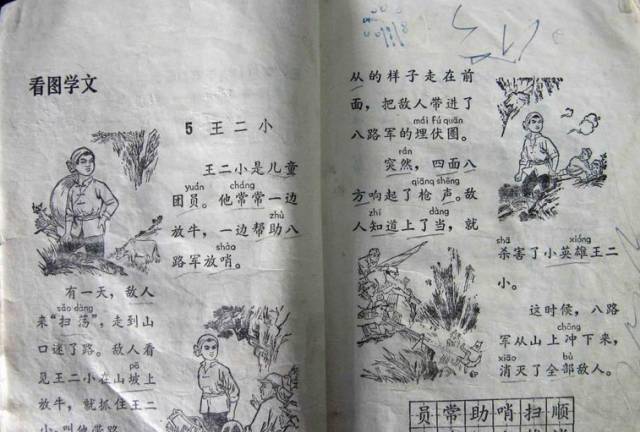 看图学文
5 王二小
王二小是儿童
yuán cháng
团员。他常常一边
zhù
放牛，一边帮助八
shào
路军放哨。
有一天，敌人
sǎo dàng
来“扫荡”，走到山
口迷了路。敌人看
pō
见王二小在山坡上
放牛，就抓住王二
小，叫他带路
从的样子走在前
面，把敌人带进了
mái fú quān
八路军的埋伏圈。
突然，四面八
qiāng shēng
方响起了枪声。敌
zhī dàng
人知道上了当，就
shā xióng
杀害了小英雄王二
小。
这时候，八路
chōng
军从山上冲下来，
xiāo bù
消灭了全部敌人。
员常助哨扫顺